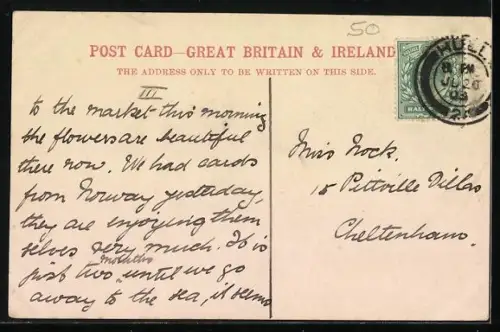 50
POST CARD—GREAT BRITAIN & IRELAND
THE ADDRESS ONLY TO BE WRITTEN ON THIS SIDE.
HULL
III
to the market this morning
the flowers are beautiful
there now. We had cards
from Norway yesterday,
they are enjoying them
selves very much. It is
just two months until we go
away to the sea, it seems
Miss Nock.
15 Pittville Villas
Cheltenham.